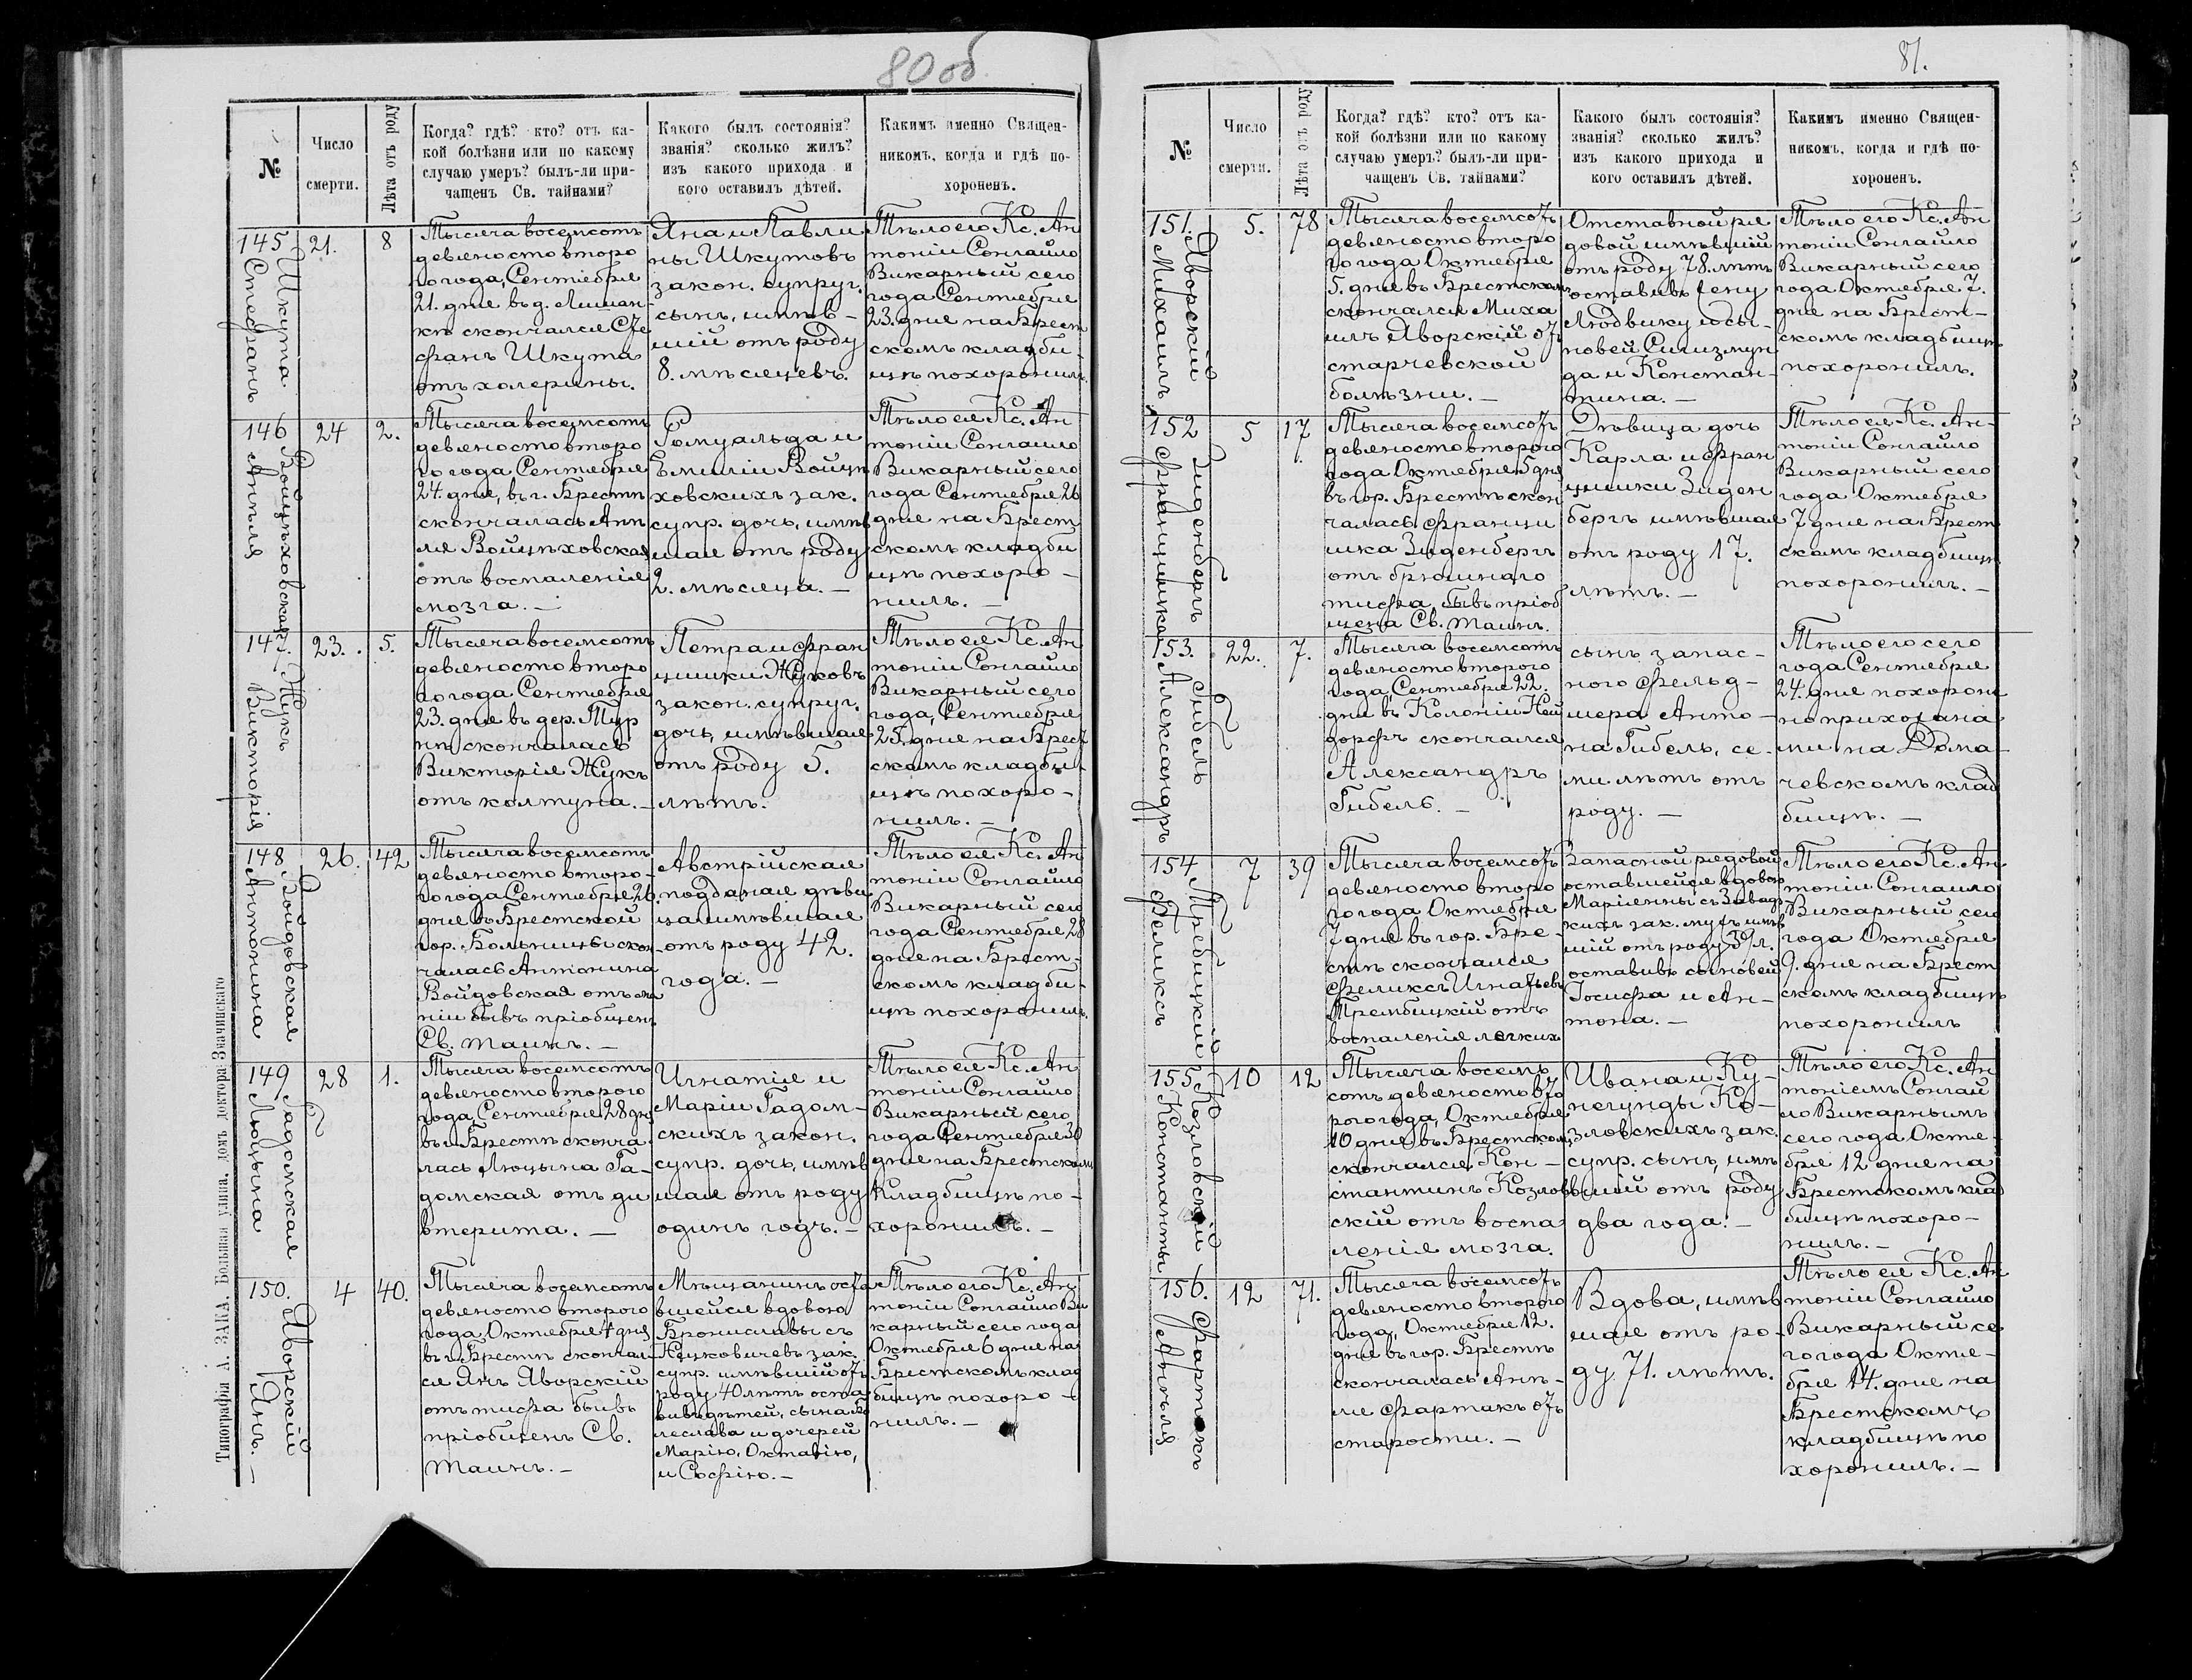 80 об
№
Число
смерти.
Лѣта отъ роду
Когда? гдѣ? кто? отъ ка-
кой болѣзни или по какому
случаю умеръ? былъ-ли при-
чащенъ Св. тайнами?
Какого былъ состоянія?
званія? сколько жилъ?
изъ какого прихода и
кого оставилъ дѣтей.
Какимъ именно Священ-
никомъ, когда и гдѣ по-
хороненъ.
145
Шкута
Стефанъ
21.
8
Тысяча восемсотъ
девяносто второ
го года, Сентября
21. дня въ д. Лишан-
кѣ скончался Сте
фанъ Шкута
отъ холерины.
Яна и Павли
ны Шкутовъ
закон. супруг.
сынъ, имѣв-
шій отъ роду
8. мѣсяцевъ.
Тѣло его Кс. Ан
тоній Сонгайло
Викарный сего
года Сентября
23. дня на Брест
скомъ кладби-
щѣ похоронилъ.
146
Войцѣховская
Анѣля
24
2.
Тысяча восемсотъ
девяносто второ
го года Сентября
24. дня, въ г. Брестѣ
скончалась Анѣ
ля Войцѣховская
отъ воспаленія
мозга. —
Ромуальда и
Емиліи Войцѣ
ховскихъ зак.
супр. дочь, имѣв
шая отъ роду
2. мѣсяца. —
Тѣло ея Кс. Ан
тоній Сонгайло
Викарный сего
года Сентября 26
дня на Брест
скомъ кладби
щѣ похоро-
нилъ. —
147.
Жукъ
Викторія
23.
5.
Тысяча восемсотъ
девяносто второ
го года Сентября
23. дня въ дер. Тур
нѣ скончалась
Викторія Жукъ
отъ колтуна. —
Петра и Фран
цишки Жуковъ
закон. супруг.
дочь, имѣвшая
отъ роду 5.
лѣтъ.
Тѣло ея Кс. Ан
тоній Сонгайло
Викарный сего
года, Сентября
25. дня на Брест
скомъ кладби-
щѣ похоро-
нилъ. —
148
Войдовская
Антонина
26.
42
Тысяча восемсотъ
девяносто второ-
го года Сентября 26.
дня въ Брестской
гор. Больницѣ скон
чалась Антонина
Войдовская отъ
ніи бывъ пріобщен.
Св. Таинъ. —
Австрійская
подданая дѣви
ца имѣвшая
отъ роду 42.
года. —
Тѣло ея Кс. Ан
тоній Сонгайло
Викарный сего
года Сентября 28
дня на Брест-
скомъ кладби-
щѣ похоронилъ.
149
Гадомская
Люцына
28
1.
Тысяча восемсотъ
девяносто второго
года, Сентября 28 дня
въ г. Брестѣ сконча
лась Люцына Га-
домская отъ ди
втерита. —
Игнатія и
Маріи Гадом-
скихъ закон.
супр. дочь, имѣв
шая отъ роду
одинъ годъ. —
Тѣло ея Кс. Ан
тоній Сонгайло
Викарный сего
года Сентября 30
дня на Брестскомъ
Кладбищѣ по-
хоронилъ. —
150.
Яворскій
Янъ. —
4
40.
Тысяча восемсотъ
девяносто второго
года Октября 4 дня
въ г. Брестѣ скончал
ся Янъ Яворскій
отъ тифа бывъ
пріобщенъ Св.
Таинъ. —
Мѣщанинъ оста
вшейся вдовою
Брониславы съ
зак.
супр. имѣвшій отъ
роду 40 лѣтъ оста
вивъ дѣтей, сына Бо
леслава и дочерей
Марію, Октавію,
и Софію. —
Тѣло его Кс. Ан
тоній Сонгайло Ви
карный сего года
Октября 6 дня на
Брестскомъ клад
бищѣ похоро-
нилъ. —
Типографія А. ЗАКА, Большая улица, домъ доктора Значинскаго
81.
№
Число
смерти.
Лѣта отъ роду
Когда? гдѣ? кто? отъ ка-
кой болѣзни или по какому
случаю умеръ? былъ-ли при-
чащенъ Св. тайнами?
Какого былъ состоянія?
званія? сколько жилъ?
изъ какого прихода и
кого оставилъ дѣтей.
Какимъ именно Священ-
никомъ, когда и гдѣ по-
хороненъ.
151.
Яворскій
Михаилъ
5.
78
Тысяча восемсотъ
девяносто второ
го года Октября
5. дня въ Брестскомъ
скончался Миха
илъ Яворскій отъ
старческой
болѣзни. —
Отставной ря
довой имѣвшій
отъ роду 78. лѣтъ
оставивъ жену
Людвику и сы-
новей Сигизмун
да и Констан-
тина. —
Тѣло его Кс. Ан
тоній Сонгайло
Викарный сего
года Октября 7.
дня на Брест-
скомъ кладбищѣ
похоронилъ.
152
Зиденбергъ
Францишка
5
17
Тысяча восемсотъ
девяносто второго
года Октября 5 дня
въ гор. Брестѣ скон
чалась Франци
шка Зиденбергъ
отъ брюшнаго
тифа, бывъ пріоб
щена Св. Таинъ.
Дѣвица дочь
Карла и Фран
цишки Зиден
бергъ имѣвшая
отъ роду 17.
лѣтъ. —
Тѣло ея Кс. Ан-
тоній Сонгайло
Викарный сего
года Октября
7 дня на Брест
скомъ кладбищѣ
похоронилъ. —
153.
Гибель
Александръ
22.
7.
Тысяча восемсотъ
девяносто второго
года, Сентября 22.
дня въ Колоніи Ней
дорфъ скончался
Александръ
Гибель. —
сынъ запас-
ного фельд-
шера Анто-
на Гибель, се-
ми лѣтъ отъ
роду. —
Тѣло его сего
года Сентября
24. дня похороне
но прихожана
ми на Дома-
чевскомъ клад
бищѣ. —
154
Трембицкій
Феликсъ
7
39
Тысяча восемсотъ
девяносто второ
го года Октября
7 дня въ гор. Бре-
стѣ скончался
Феликсъ Игнатьевъ
Трембицкій отъ
воспаленія легкихъ
Запасной рядовой
оставшейся вдовою
Маріянны съ Завадз-
кихъ зак. мужъ имѣв
шій отъ роду 39 л.
оставивъ сыновей
Іосифа и Ан-
тона. —
Тѣло его Кс. Ан
тоній Сонгайло
Викарный сего
года Октября
9. дня на Брест
скомъ кладбищѣ
похоронилъ
155
Козловскій
Константинъ
10
12
Тысяча восемь
сотъ девяносто вто
рого года, Октября
10 дня, въ Брестскомъ
скончался Кон-
стантинъ Козлов
скій отъ воспа
ленія мозга.
Ивана и Ку-
негунды Ко-
зловскихъ зак.
супр. сынъ, имѣ
вшій отъ роду
два года. —
Тѣло его Кс. Ан
тоніемъ Сонгай
ло Викарнымъ
сего года Октя-
бря 12 дня на
Брестскомъ клад
бищѣ похоро-
нилъ. —
156.
Фартакъ
Анѣля
12
71.
Тысяча восемсотъ
девяносто второго
года, Октября 12.
дня въ гор. Брестѣ
скончалась Анѣ-
ля Фартакъ отъ
старости. —
Вдова, имѣв
шая отъ ро-
ду 71. лѣтъ.
Тѣло ея Кс. Ан
тоній Сонгайло
Викарный се
го года Октя-
бря 14. дня на
Брестскомъ
кладбищѣ по
хоронилъ. —